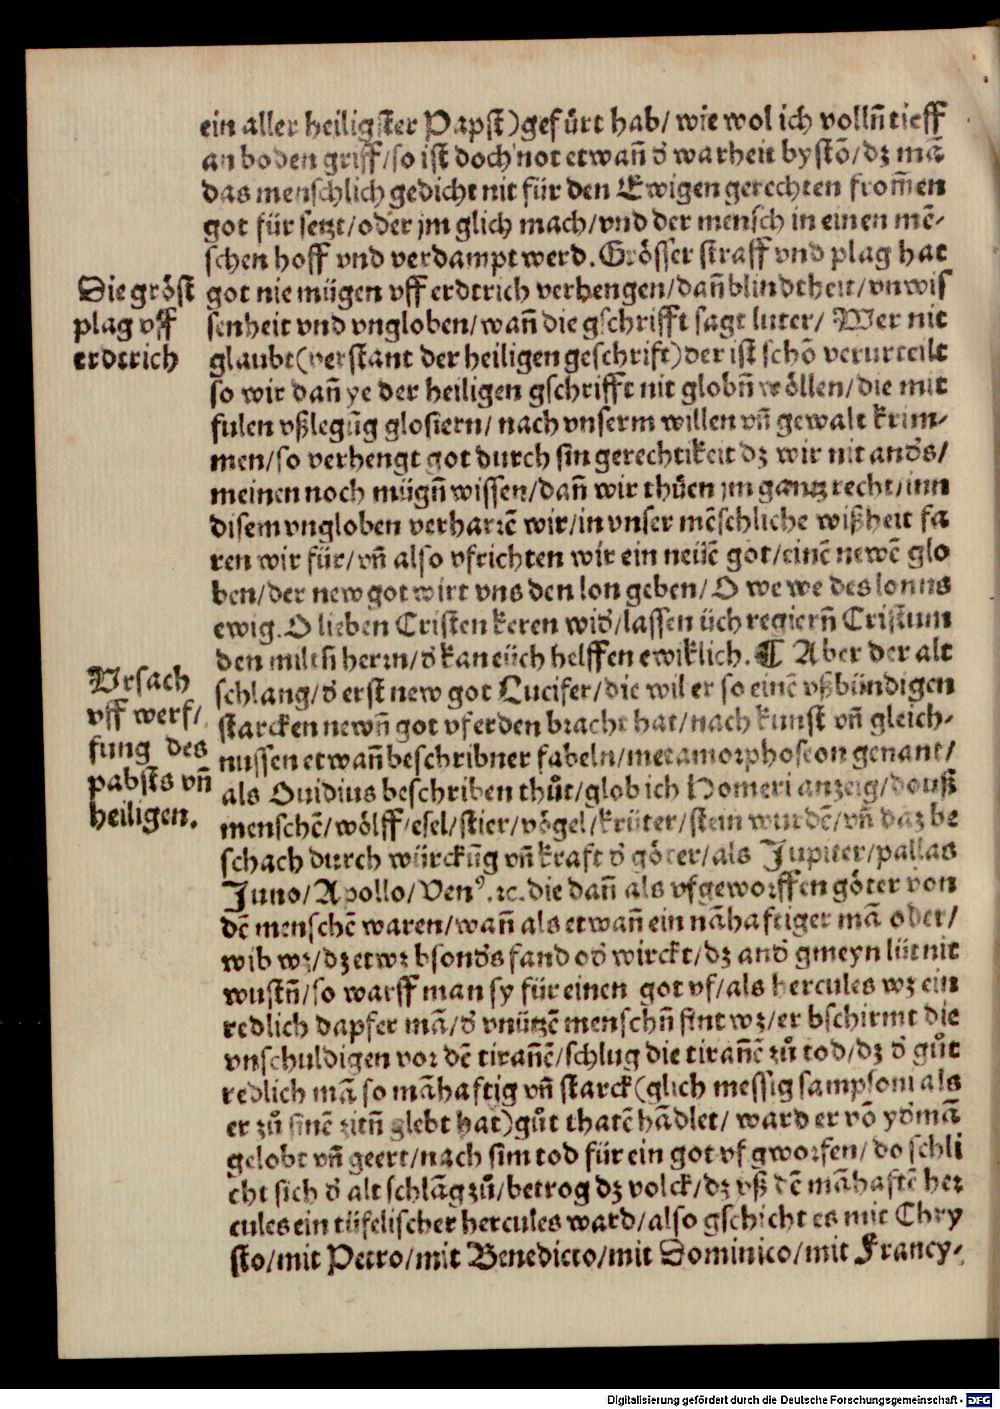 ein aller heiligster Papst)gefůrt hab/ wie wol ich volln̄ tieff
an boden griff/so ist doch not etwan̄ d̕ warheit bystō/dz mā
das menschlich gedicht nit für den Ewigen gerechten from̄en
got für setzt/oder jm glich mach/vnd der mensch in einen mē-
schen hoff vnd verdampt werd. Grösser straff vnd plag hat
Die gröst
plag vff
erdtrich
got nie mügen vff erdtrich verhengen/dan̄ blindtheit/vnwis
senheit vnd vngloben/wan̄ die gschrifft sagt luter/ Wer nit
glaubt(verstant der heiligen geschrift)der ist schō verurteilt
so wir dan̄ ye der heiligen gschrifft nit globn̄ wöllen/die mit
fulen vßlegūg glosiern/ nach vnserm willen vn̄ gewalt krim-
men/so verhengt got durch sin gerechtikeit dz wir nit and̕s/
meinen noch mügn̄ wissen/dan̄ wir thůen jm gantz recht/inn
disem vngloben verharrē wir/in vnser mēschliche wißheit fa
ren wir für/vn̄ also vfrichten wir ein neüē got/einē newē glo
ben/der new got wirt vns den lon geben/ O we we des lonns
ewig. O lieben Cristen keren wid̕/lassen üch regiern̄ Cristum
den miltn̄ herrn/d̕ kan eüch helffen ewiklich. ¶ Aber der alt
Vrsach
vff werf/
fung des
pabsts vn̄
heiligen.
schlang/d̕ erst new got Lucifer/die wil er so einē vßbündigen
starcken newn̄ got vf erden bracht hat/nach kunst vn̄ gleich-
nussen etwan̄ beschribner fabeln/metamorphoseon genant/
als Ouidius beschriben thůt/glob ich Homeri anzeig/do uß
menschē/wölff/esel/stier/vögel/krüter/stein wurdē/vn̄ daz be
schach durch würckūg vn̄ kraft d̕ göter/als Jupiter/pallas
Juno/Apollo/Venꝰ.ꝛc.die dan̄ als vfgeworffen göter von
dē menschē waren/wan̄ als etwan̄ ein nāhaftiger mā oder/
wib wz/dz etwz bsond̕s fand od̕ wirckt/dz and̕ gmeyn lüt nit
wustn̄/so warff man sy für einen got vf/als hercules wz ein
redlich dapfer mā/d̕ vnützē menschn̄ fint wz/er bschirmt die
vnschuldigen vor dē tiran̄ē/schlug die tiran̄ē zů tod/dz d̕ gůt
redlich mā so māhaftig vn̄ starck(glich messig sampsoni als
er zů sinē zitn̄ glebt hat)gůt thatē hādlet/ ward er vō yd̕mā
gelobt vn̄ geert/nach sim tod für ein got vf gworfen/do schli
cht sich d̕ alt schlāg zů/betrog dz volck/dz vß dē māhaftē her
cules ein tüfelischer hercules ward/also gschicht es mit Chry
sto/mit Petro/mit Benedicto/mit Dominico/mit Francy-
Digitalisierung gefördert durch die Deutsche Forschungsgemeinschaft - DFG